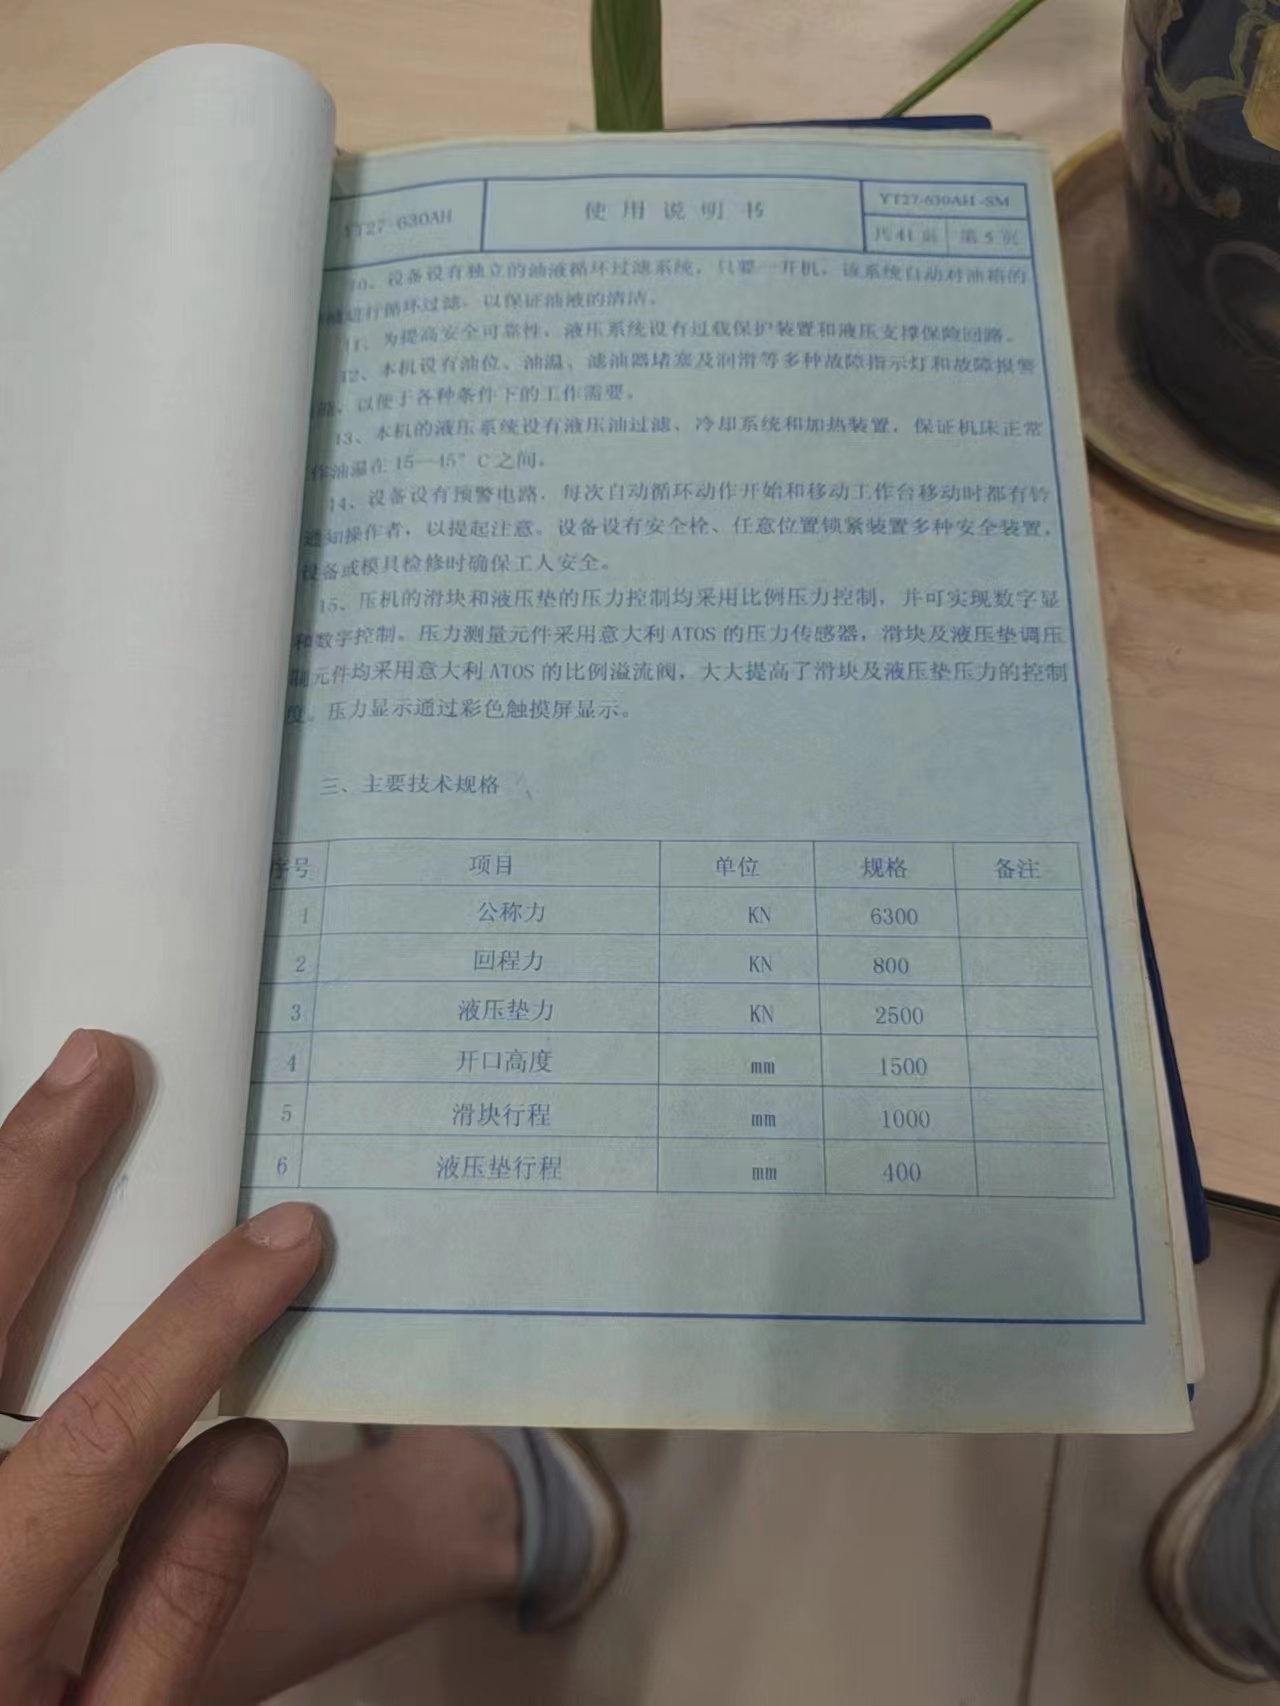 YT27-630AH
使用说明书
YT27-630AH-SM
共 41 页 第 5 页
10、设备设有独立的油液循环过滤系统，只要一开机，该系统自动对油箱的
进行循环过滤，以保证油液的清洁。
11、为提高安全可靠性，液压系统设有过载保护装置和液压支撑保险回路。
12、本机设有油位、油温、滤油器堵塞及润滑等多种故障指示灯和故障报警
，以便于各种条件下的工作需要。
13、本机的液压系统设有液压油过滤、冷却系统和加热装置，保证机床正常
油温在 15—45°C 之间。
14、设备设有预警电路，每次自动循环动作开始和移动工作台移动时都有铃
通知操作者，以提起注意。设备设有安全栓、任意位置锁紧装置多种安全装置，
设备或模具检修时确保工人安全。
15、压机的滑块和液压垫的压力控制均采用比例压力控制，并可实现数字显
和数字控制。压力测量元件采用意大利 ATOS 的压力传感器，滑块及液压垫调压
制元件均采用意大利 ATOS 的比例溢流阀，大大提高了滑块及液压垫压力的控制
度。压力显示通过彩色触摸屏显示。
三、主要技术规格
序号 项目 单位 规格 备注
1 公称力 KN 6300
2 回程力 KN 800
3 液压垫力 KN 2500
4 开口高度 mm 1500
5 滑块行程 mm 1000
6 液压垫行程 mm 400